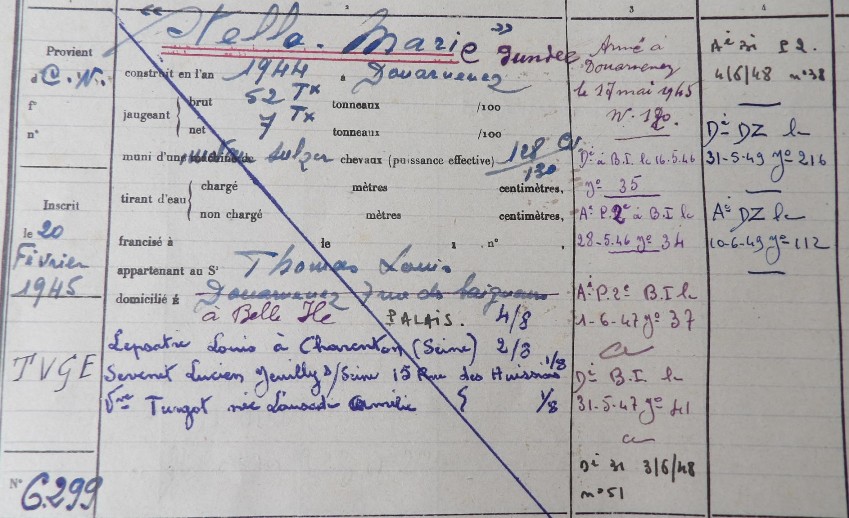 2
3
4
« Stella-Marie » dundee
Provient
d C. N.
f°
n°
Inscrit
le 20
Février
1945
TVGE
N° 6.299
construit en l'an 1944 à Douarnenez
jaugeant { brut 52 Tx tonneaux /100
net 7 Tx tonneaux /100
muni d'une machine Sulzer chevaux (puissance effective) 128 cv
130
tirant d'eau { chargé mètres centimètres,
non chargé mètres centimètres,
francisé à le 1 . n° ,
appartenant au Sr Thomas Louis
domicilié à Douarnenez 7 rue
à Belle Ile PALAIS. 4/8
Lepoatre Louis à Charenton (Seine) 2/8
Sevenet Lucien Neuilly s/Seine 15 Rue des Huissiers 1/8
Vve Turgot née Amélie 1/8
Armé à
Douarnenez
le 17 mai 1945
N. 120.
Dé à B.I. le 16.5.46
n° 35
Aé P. 2e à B.I le
28-5.46 n° 34
Aé P. 2e B.I le
1-6-47 n° 37
Dé B.I. le
31-5-47 n° 41
Dé 31 3/6/48
n° 51
Aé 31 P2.
4/6/48 n° 38
Dé DZ le
31-5-49 n° 216
Aé DZ le
10-6-49 n° 112